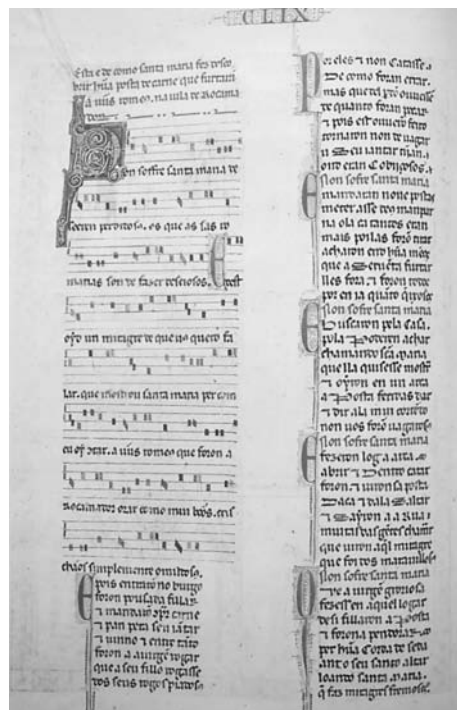 CLIX
Esta e de como santa maria fez desco
brir hũa posta de carne que furtarã
a vũs romeus na vila de Rocama
dor
Non soffre santa maria de
seeren perdidosos. os que as sas ro
marias son de fazer deseiosos. E dest
oyde un miragre de que uos quero fa
lar. que mostrou santa maria per com
eu oy contar. a vũs romeus que foron a
Rocamador orar como mui bõos. cris
chãos simplemente omildosos.
E pois entraron no burgo
foron pousada fillar
e mandaron conprar carne
e pan pera seu iantar
e vinno e entre tanto
foron a uirgen rogar
que a seu fillo rogasse
dos seus rogos piadosos
Por eles e non catasse
de como foran errar.
mas que del perdon ouuessen
de quanto foran pecar
e pois est ouueron feito
tornaron non de uagar
u seu iantar tijnan
onde eran cobiiçosos.
Non sofre santa maria
E mandaran noue postas
meter. asse deus manpar
na ola ca tantos eran
mais poilas foron tirar
acharon end hũa menos
que a seruenta furtar
lles fora. e foron todos
por en ia quanto queixosos
Non sofre santa maria
E buscaron pela casa.
pola poderen achar
chamando santa maria
que lla quisesse mostrar
e oyron en un arca
a posta feridas dar
e dir ala mui correndo
non uos foron uagarosos
Non sofre santa maria
E fezeron log a arca.
abrir e dentro catar
foron. e uiron sa posta
daca e dala saltar
e sayron a a rua
muitas das gentes chamar
que uiron aquel miragre
que foi dos marauillosos
Non sofre santa maria
Des i a uirgen gloriosa
fezessen aquel logar
des i fillaron a posta
e forona pendorar
per hũa corda de seda
ant o seu santo altar
loando santa maria.
que faz miragres fremosos.